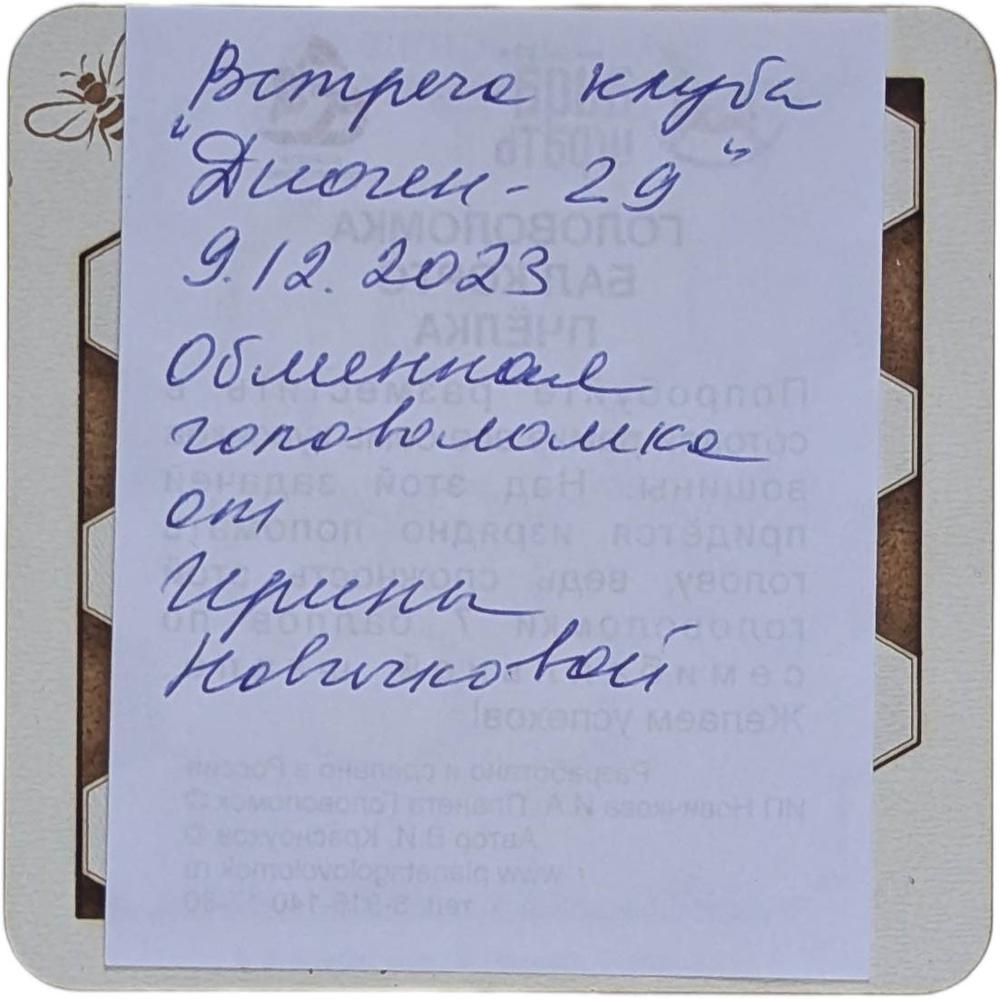 Встреча клуба
"Диоген - 29"
9.12.2023
Обменная
головоломка
от
Ирины
Новичковой
ГОЛОВОЛОМКА
ПЧЁЛКА
Попробуйте разместить в
вощины. Над этой задачей
придётся изрядно поломать
голову, ведь сложность этой
головоломки 7 баллов по
Желаем успехов!
Разработано и сделано в России
ИП Новичкова И.А. Планета Головоломок ©
Автор В.И. Красноухов ©
www.planetagolovolomok.ru